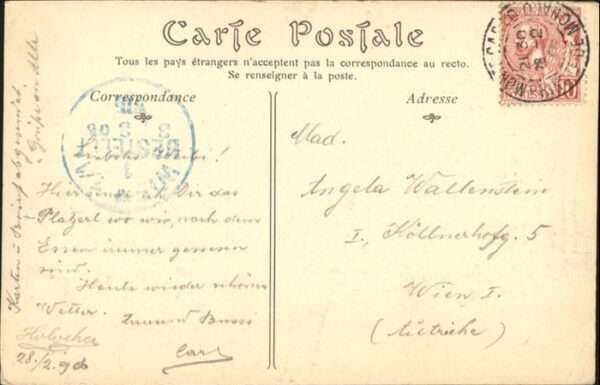 Carte Postale
Tous les pays étrangers n'acceptent pas la correspondance au recto.
Se renseigner à la poste.
Correspondance
Adresse
Hier sende ich Dir das
Platzerl wo wir, nach dem
Essen immer gewesen
sind.
Heute wieder schönes
Wetter.
Tausend Bussi
Carl
28./2. 908
Karten u
BESTELLT
WIEN
Mad.
Angela Wallenstein
I., Köllnerhofg. 5
Wien I.
(Autriche)
MONTE